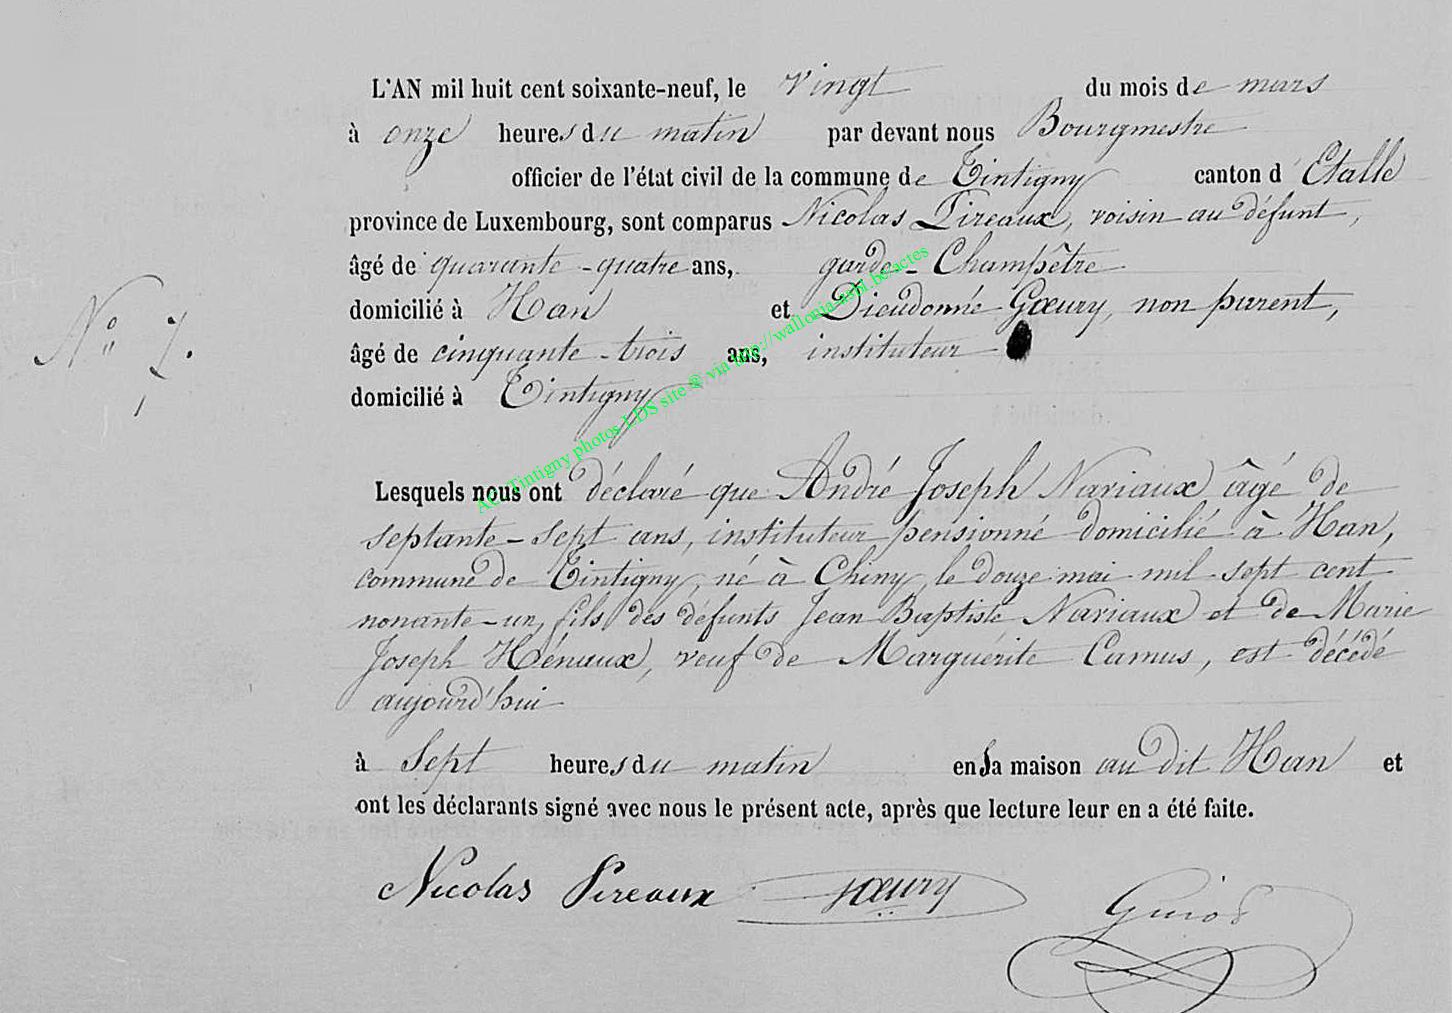 L'AN mil huit cent soixante-neuf, le vingt du mois de mars
à onze heures du matin par devant nous Bourgmestre
officier de l'état civil de la commune de Tintigny canton d'Etalle
province de Luxembourg, sont comparus Nicolas Pireaux, voisin au défunt,
âgé de quarante-quatre ans, garde-Champêtre
domicilié à Han et Dieudonné Gœury, non parent,
N° 7.
âgé de cinquante-trois ans, instituteur
domicilié à Tintigny
Lesquels nous ont déclaré que André Joseph Nariaux âgé de
septante-sept ans, instituteur pensionné domicilié à Han,
commune de Tintigny, né à Chiny, le douze mai mil-sept cent
nonante-un, fils des défunts Jean Baptiste Nariaux et de Marie
Joseph Hénaux, veuf de Marguérite Camus, est décédé
aujourd'hui
à sept heures du matin en sa maison au dit Han et
ont les déclarants signé avec nous le présent acte, après que lecture leur en a été faite.
Nicolas Pireaux Gœury
Tintigny photos LDS site @ via http://wallonia-asbl.be/actes